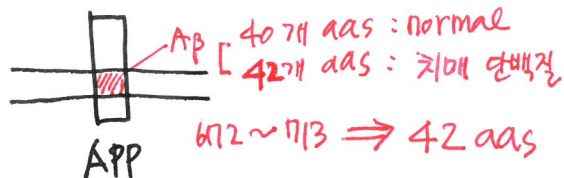 Aβ
40개 aas : normal
42개 aas : 치매 단백질
672 ~ 713 ⇒ 42 aas
APP